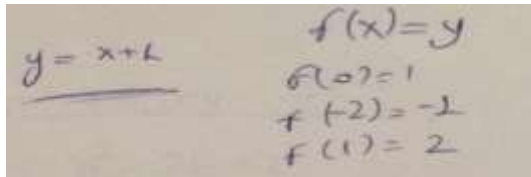 y = x+1
f(x)=y
f(0)=1
f(-2)=-1
f(1)=2